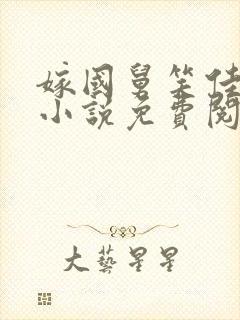 嫁國舅笑佳
小說免費閱
大藝星星